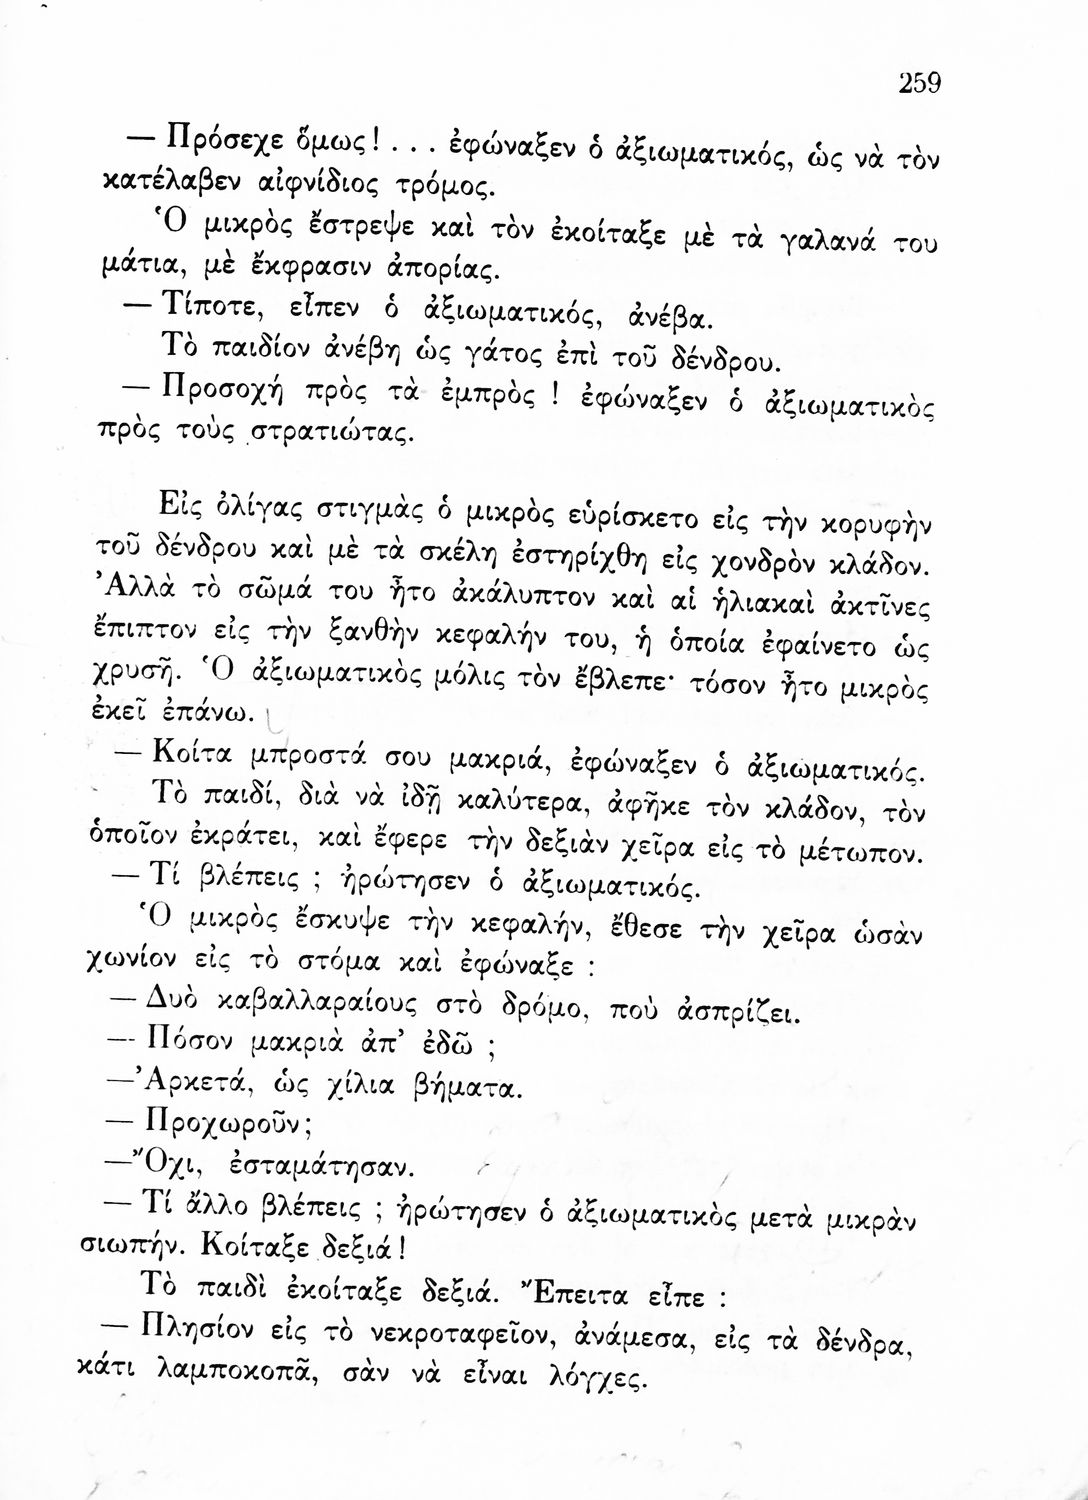 259
— Πρόσεχε ὅμως! . . . ἐφώναξεν ὁ ἀξιωματικός, ὡς νὰ τὸν
κατέλαβεν αἰφνίδιος τρόμος.
Ὁ μικρὸς ἔστρεψε καὶ τὸν ἐκοίταξε μὲ τὰ γαλανά του
μάτια, μὲ ἔκφρασιν ἀπορίας.
— Τίποτε, εἶπεν ὁ ἀξιωματικός, ἀνέβα.
Τὸ παιδίον ἀνέβη ὡς γάτος ἐπὶ τοῦ δένδρου.
— Προσοχή πρὸς τὰ ἐμπρὸς ! ἐφώναξεν ὁ ἀξιωματικὸς
πρὸς τοὺς στρατιώτας.
Εἰς ὀλίγας στιγμὰς ὁ μικρὸς εὑρίσκετο εἰς τὴν κορυφὴν
τοῦ δένδρου καὶ μὲ τὰ σκέλη ἐστηρίχθη εἰς χονδρὸν κλάδον.
Ἀλλὰ τὸ σῶμά του ἦτο ἀκάλυπτον καὶ αἱ ἡλιακαὶ ἀκτῖνες
ἔπιπτον εἰς τὴν ξανθὴν κεφαλήν του, ἡ ὁποία ἐφαίνετο ὡς
χρυσῆ. Ὁ ἀξιωματικὸς μόλις τὸν ἔβλεπε· τόσον ἦτο μικρὸς
ἐκεῖ ἐπάνω.
— Κοίτα μπροστά σου μακριά, ἐφώναξεν ὁ ἀξιωματικός.
Τὸ παιδί, διὰ νὰ ἰδῇ καλύτερα, ἀφῆκε τὸν κλάδον, τὸν
ὁποῖον ἐκράτει, καὶ ἔφερε τὴν δεξιὰν χεῖρα εἰς τὸ μέτωπον.
— Τί βλέπεις ; ἠρώτησεν ὁ ἀξιωματικός.
Ὁ μικρὸς ἔσκυψε τὴν κεφαλήν, ἔθεσε τὴν χεῖρα ὡσὰν
χωνίον εἰς τὸ στόμα καὶ ἐφώναξε :
— Δυὸ καβαλλαραίους στὸ δρόμο, ποὺ ἀσπρίζει.
— Πόσον μακριὰ ἀπ’ ἐδῶ ;
—Ἀρκετά, ὡς χίλια βήματα.
— Προχωροῦν;
—Ὄχι, ἐσταμάτησαν.
— Τί ἄλλο βλέπεις ; ἠρώτησεν ὁ ἀξιωματικὸς μετὰ μικρὰν
σιωπήν. Κοίταξε δεξιά!
Τὸ παιδὶ ἐκοίταξε δεξιά. Ἔπειτα εἶπε :
— Πλησίον εἰς τὸ νεκροταφεῖον, ἀνάμεσα, εἰς τὰ δένδρα,
κάτι λαμποκοπᾶ, σὰν νὰ εἶναι λόγχες.